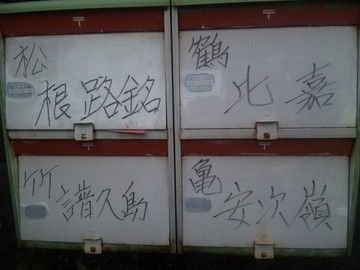 松
根路銘
鶴
比嘉
竹
譜久島
亀
安次嶺